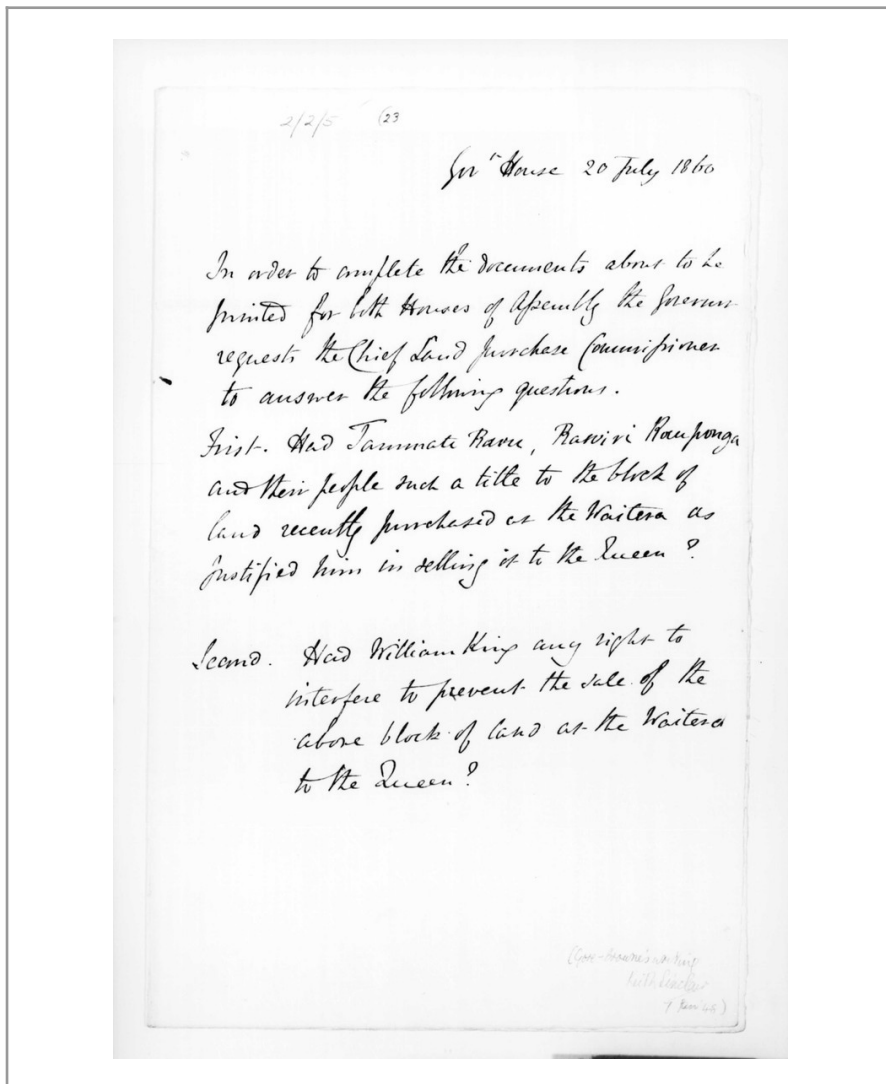 2/2/5 (23
Govt House 20 July 1860
In order to complete the documents about to be
printed for both Houses of Assembly the Governor
requests the Chief Land purchase Commissioner
to answer the following questions.
First. Had Tammate Raru, Rawiri Raupongo
and their people such a title to the block of
land recently purchased at the Waitera as
justified him in selling it to the Queen?
Second. Had William King any right to
interfere to prevent the sale of the
above block of land at the Waitera
to the Queen?
(Gore-Browne's writing
Keith Sinclair
)